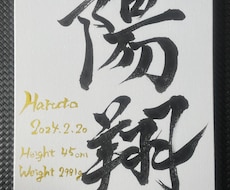 陽翔
Haruto
2024.2.20
Height 45cm
Weight 2991g